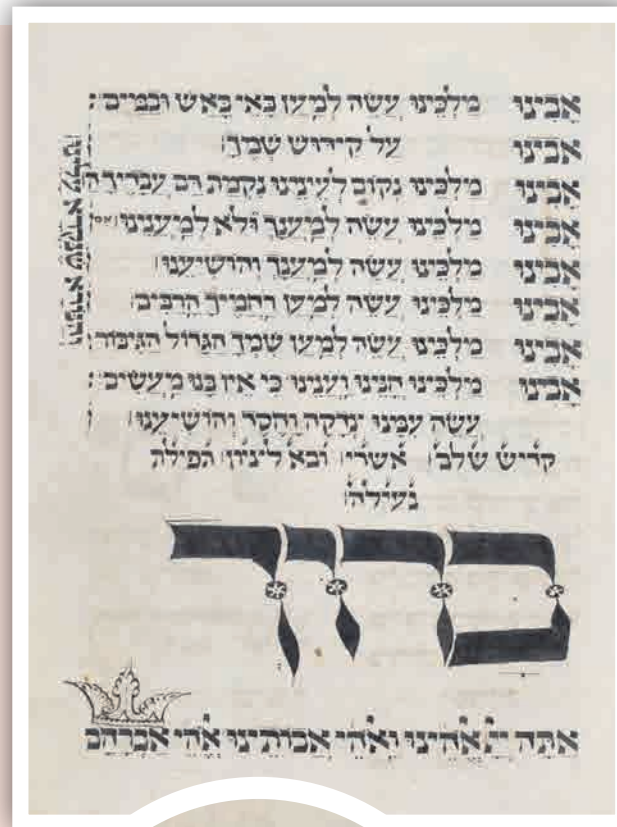 אבינו מלכינו עשה למען באי באש ובמים:
אבינו על קידוש שמך
אבינו מלכינו נקום לעינינו נקמת דם עבדיך ה
אבינו מלכינו עשה למענך ולא למענינו אם
אבינו מלכינו עשה למענך והושיענו
אבינו מלכינו עשה למען רחמיך הרבים
אבינו מלכינו עשה למען שמך הגדול הגיבור
אבינו מלכינו חנינו ועניני כי אין בנו מעשים:
עשה עמנו צדקה וחסד והושיענו
והנורא שנקרא עלינו
קדיש שלם אשרי ובא לציון תפילת
נעילה
ברוך
אתה יי אלהינו ואלהי אבותינו אלהי אברהם